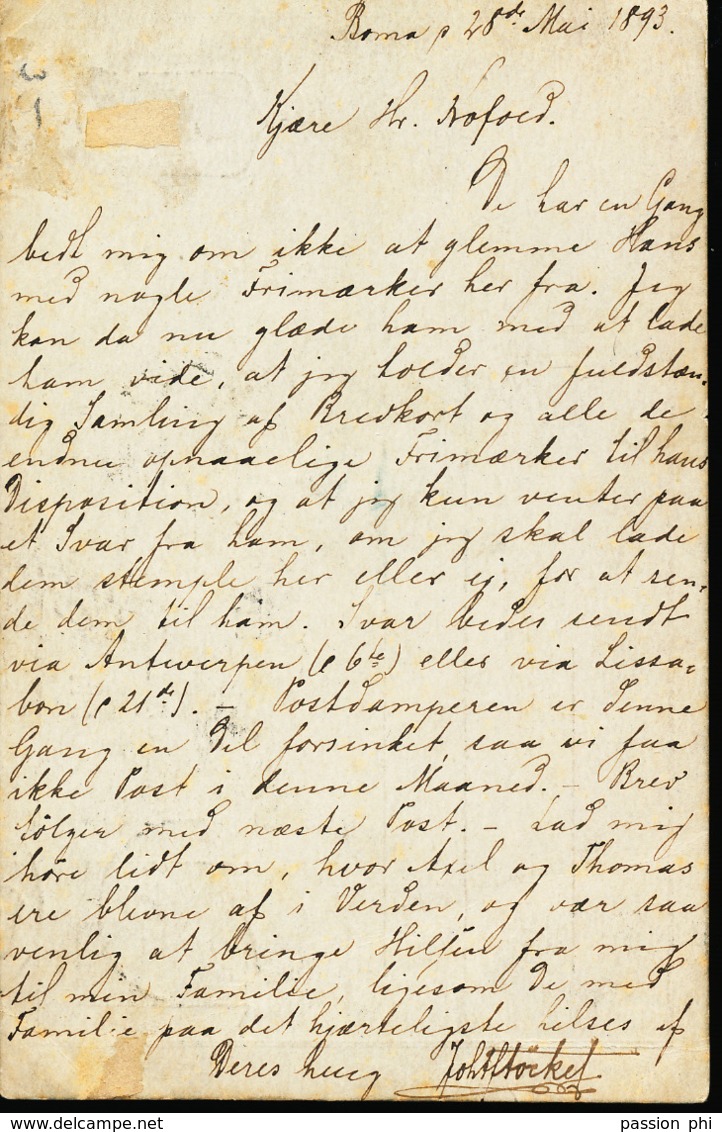 Boma p 28de Mai 1893.
Kjære Hr. Kofoed.
De har en Gang
bedt mig om ikke at glemme Hans
med nogle Frimærker her fra. Jeg
kan da nu glæde ham med at lade
ham vide, at jeg holder en fuldstæn-
dig Samling af Brevkort og alle de
endnu opnaaelige Frimærker til hans
Disposition, og at jeg kun venter paa
et Svar fra ham, om jeg skal lade
dem stemple her eller ej, for at sen-
de dem til ham. Svar bedes sendt
via Antwerpen (p 6te) eller via Lissa-
bon (p 21de). – Postdamperen er denne
Gang en Del forsinket, saa vi faa
ikke Post i denne Maaned. – Brev
følger med næste Post. – Lad mig
høre lidt om, hvor Axel og Thomas
ere blevne af i Verden, og vær saa
venlig at bringe Hilsen fra mig
til min Familie, ligesom De med
Familie paa det hjærteligste hilses af
Deres heng
passion phi